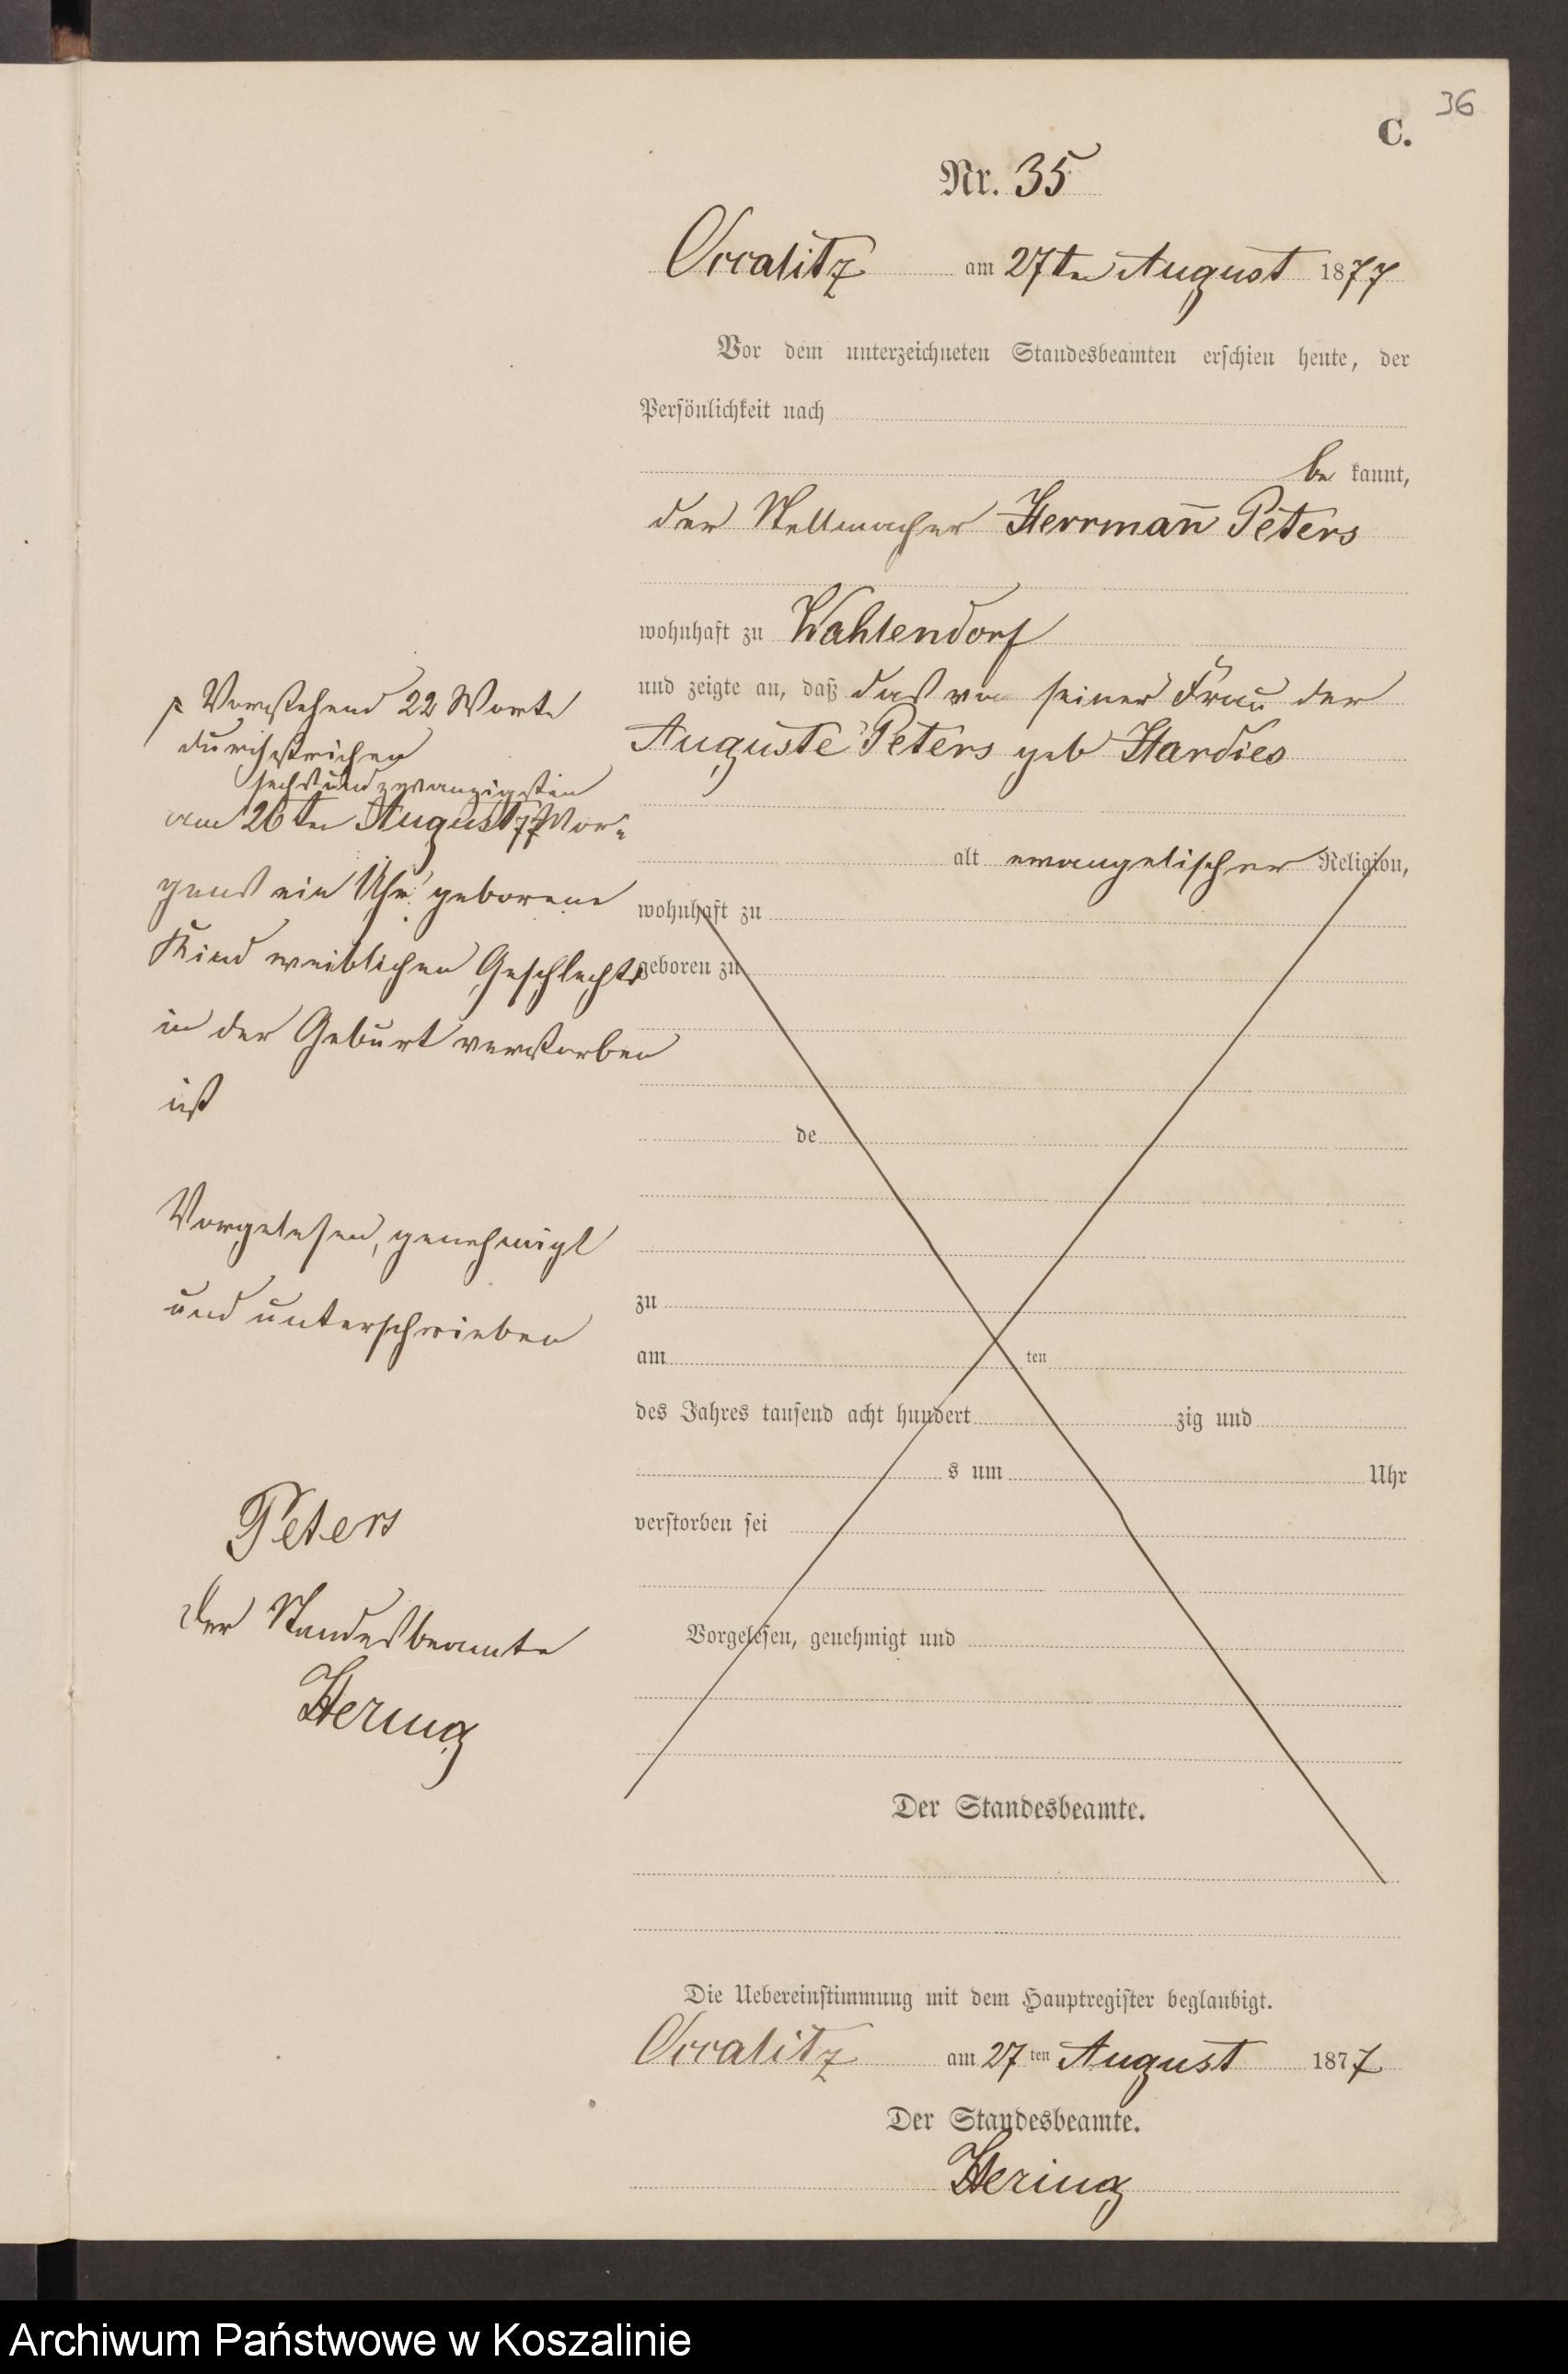 36
C.
Nr. 35
Occalitz am 27ten August 1877
Vor dem unterzeichneten Standesbeamten erschien heute, der
Persönlichkeit nach
be kannt,
der Stellmacher Herrmañ Peters
wohnhaft zu Wahlendorf
und zeigte an, daß das von seiner Frau der
Auguste Peters geb Hardies
alt evangelischer Religion,
wohnhaft zu
geboren zu
de
zu
am ten
des Jahres tausend acht hundert zig und
s um Uhr
verstorben sei
Vorgelesen, genehmigt und
Der Standesbeamte.
Vorstehend 22 Worte
durchstrichen
sechsundzwanzigsten
am 26ten August 77 Mor-
gens ein Uhr geborene
Kind weiblichen Geschlechts
in der Geburt verstorben
ist
Vorgelesen, genehmigt
und unterschrieben
Peters
Der Standesbeamte
Hering
Die Uebereinstimmung mit dem Hauptregister beglaubigt.
Occalitz am 27ten August 1877
Der Standesbeamte.
Hering
Archiwum Państwowe w Koszalinie